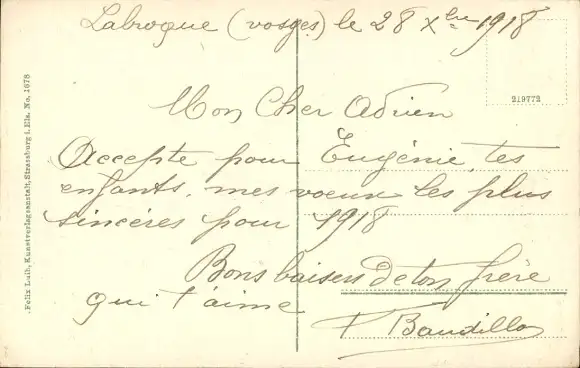 Labroque (vosges) le 28 Xbre 1918
219772
Mon Cher Adrien
Accepte pour Eugénie, tes
enfants, mes voeux les plus
sincères pour 1918
Bons baisers de ton frère
qui t'aime
Baudillon
Felix Luib, Kunstverlagsanstalt, Strassburg i. Els. No. 1678